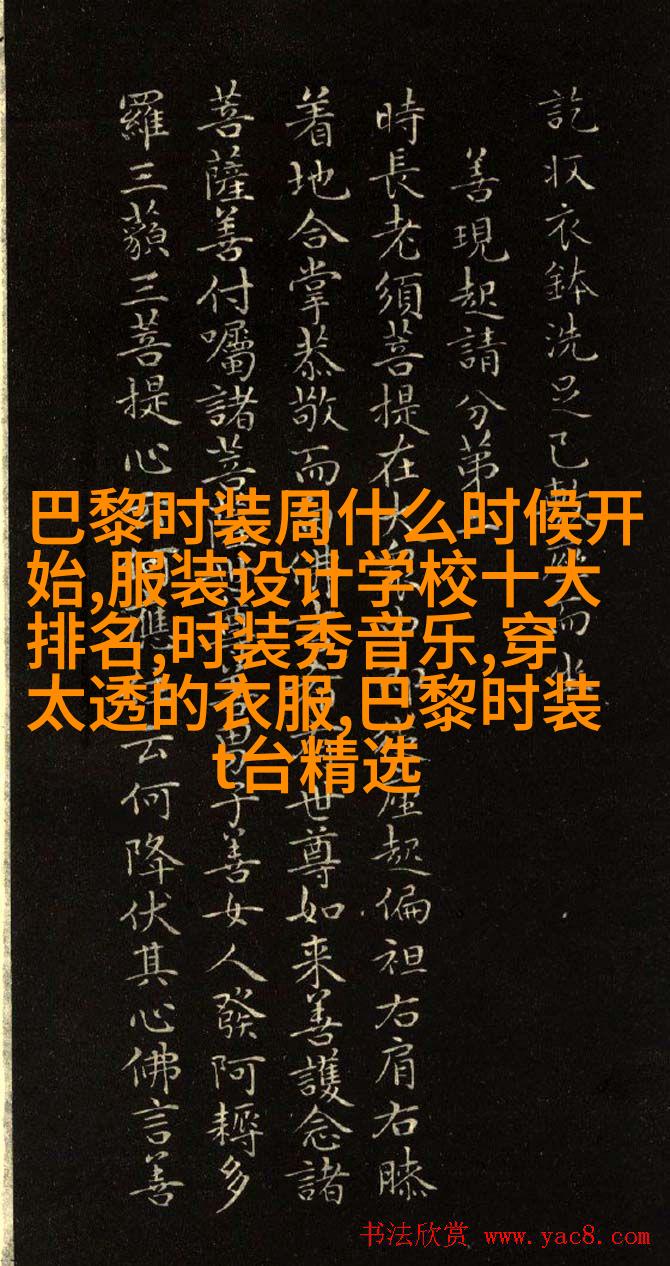 訖収衣鉢洗足已敷而
善現起請分第
時長老須菩提在大座起偏袒右肩右膝
着地合掌恭敬而佛世尊如来善護念諸
菩薩善付囑諸菩男子善女人發阿耨多
羅三藐三菩提心應云何降伏其心佛言善
巴黎时装周什么时候开
始,服装设计学校十大
排名,时装秀音乐,穿
太透的衣服,巴黎时装
t台精选
书法欣赏 www.yac8.com